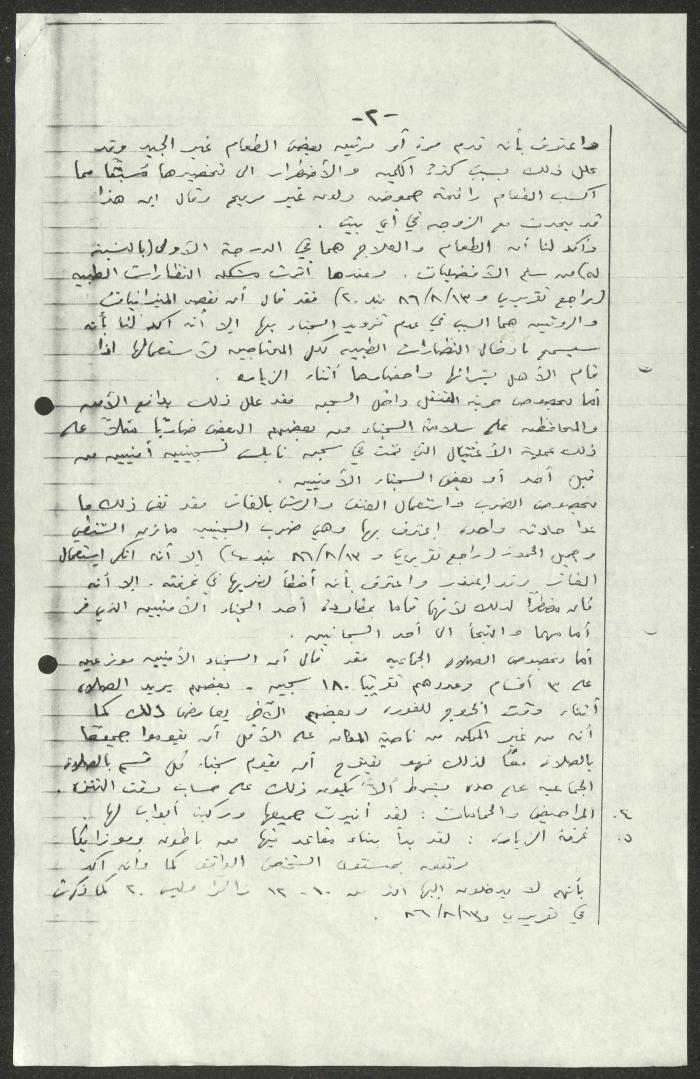 -٢-
واعترف بأنه قدم مرة أو مرتين بعض الطعام غير الجيد وقد
علل ذلك بسبب كثرة الكمية والاضطرار الى تحضيرها مُسبقًا مما
اكسب الطعام رائحة حموضه ولون غير مريح وقال ان هذا
قد يحدث مع الزوجه في أي بيت .
وأكد لنا أن الطعام والعلاج هما في الدرجة الأولى (بالنسبة
له) من سلم الأفضليات . وعندها أثرت مشكلة النظارات الطبيه
(يراجع تقريري و ٨٦/٨/١٣ بند ٢٠) فقد قال أن نقص الميزانيات
والروتين هما السبب في عدم تزويد السجناء بها إلا أنه اكد لنا بأنه
سيسمح بادخال النظارات الطبيه لكل المحتاجين لاستعمالها اذا
قام الأهل بشرائها واحضارها أثناء الزياره .
أما بخصوص حرية التنقل داخل السجن فقد علل ذلك بدافع الأمن
والمحافظه على سلامة السجناء من بعضهم البعض ضاربًا مثلاً على
ذلك عملية الأغتيال التي تمت في سجن نابلس لسجينين أمنيين من
قبل أحد أو بعض السجناء الأمنيين .
بخصوص الضرب واستعمال العنف والرش بالغاز فقد نفى ذلك ما
عدا حادثه واحده اعترف بها وهي ضرب السجينين مازن الشنطي
وجميل (راجع تقريري و ٨٦/٨/١٣ بند) إلا أنه انكر استعمال
الغاز وقد اعتذر واعترف بأنه أخطأ لضربهما في غرفته . إلا أنه
كان مضطرًا لذلك لأنهما قاما بمطاردة أحد السجناء الأمنيين الذي فر
أمامهما والتجأ الى أحد السجانين .
أما بخصوص الصلاه الجماعيه فقد قال أن السجناء الأمنيين موزعين
على ٣ أقسام وعددهم تقريبًا ١٨٠ سجين - بعضهم يريد الصلاه
أثناء وقت الخروج للفوره وبعضهم الآخر يعارض ذلك كما
أنه من غير الممكن من ناحية المكان على الأقل أن يقوموا جميعًا
بالصلاة معًا لذلك فهو يقترح أن يقوم سجناء كل قسم بالصلاه
الجماعيه على حده بشرط ألاّ يكون ذلك على حساب وقت التنزه .
٤. المراحيض والحمامات : لقد أنيرت جميعها وركبت أبواب لها .
٥. غرفة الزياره : لقد بدأ ببناء مقاعد فيها من باطون وموزايكا
مرتفعه بمستوى الشخص الواقف كما وانه اكد
بأنهم لا يدخلون اليها أكثر من ١٠-١٢ زائرًا وليس ٢٠ كما ذكرت
في تقريري و ٨٦/٨/١٣ .